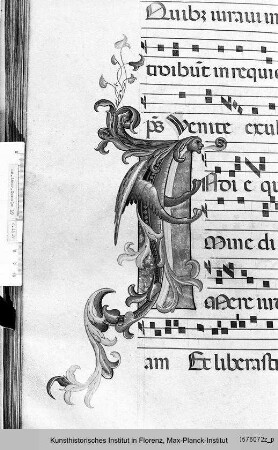 Quibꝫ iuraui in
troibūt in requie
p̄s Venite exul
Indi e qu
Mine di
aMere me
am Et liberasti
Kunsthistorisches Institut in Florenz, Max-Planck-Institut